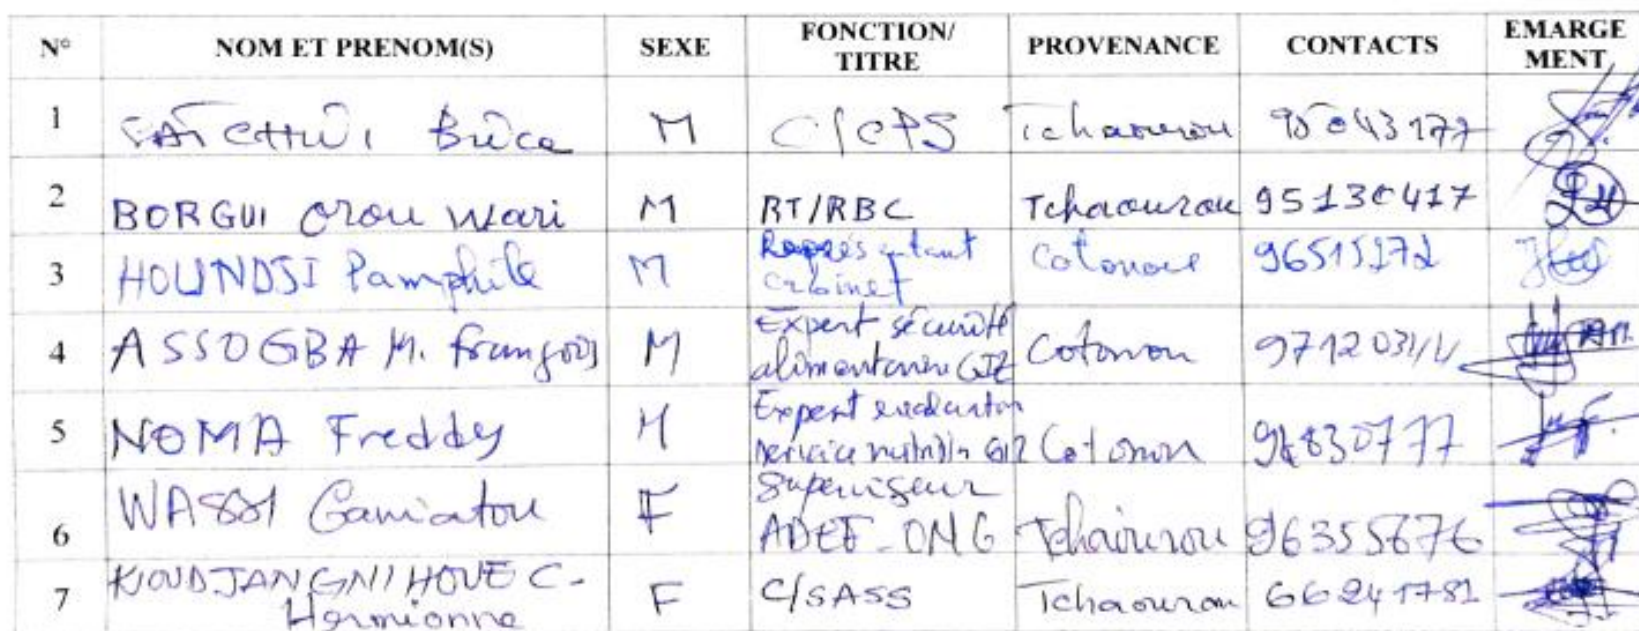 N° NOM ET PRENOM(S) SEXE FONCTION/ TITRE PROVENANCE CONTACTS EMARGE MENT
1 Brice M C/CPS Tchaourou 95043177
2 BORGUI Orou Wari M RT/RBC Tchaourou 95130417
3 HOUNDJI Pamphile M Représentant cabinet Cotonou 96515172
4 ASSOGBA M. François M Expert sécurité alimentaire GIZ Cotonou
5 NOMA Freddy M Expert GIZ Cotonou
6 WASSI Ganiatou F Superviseur ADEF-ONG Tchaourou 96355676
7 KOUDJANGNIHOUE C. Hermionne F C/SASS Tchaourou 66241781